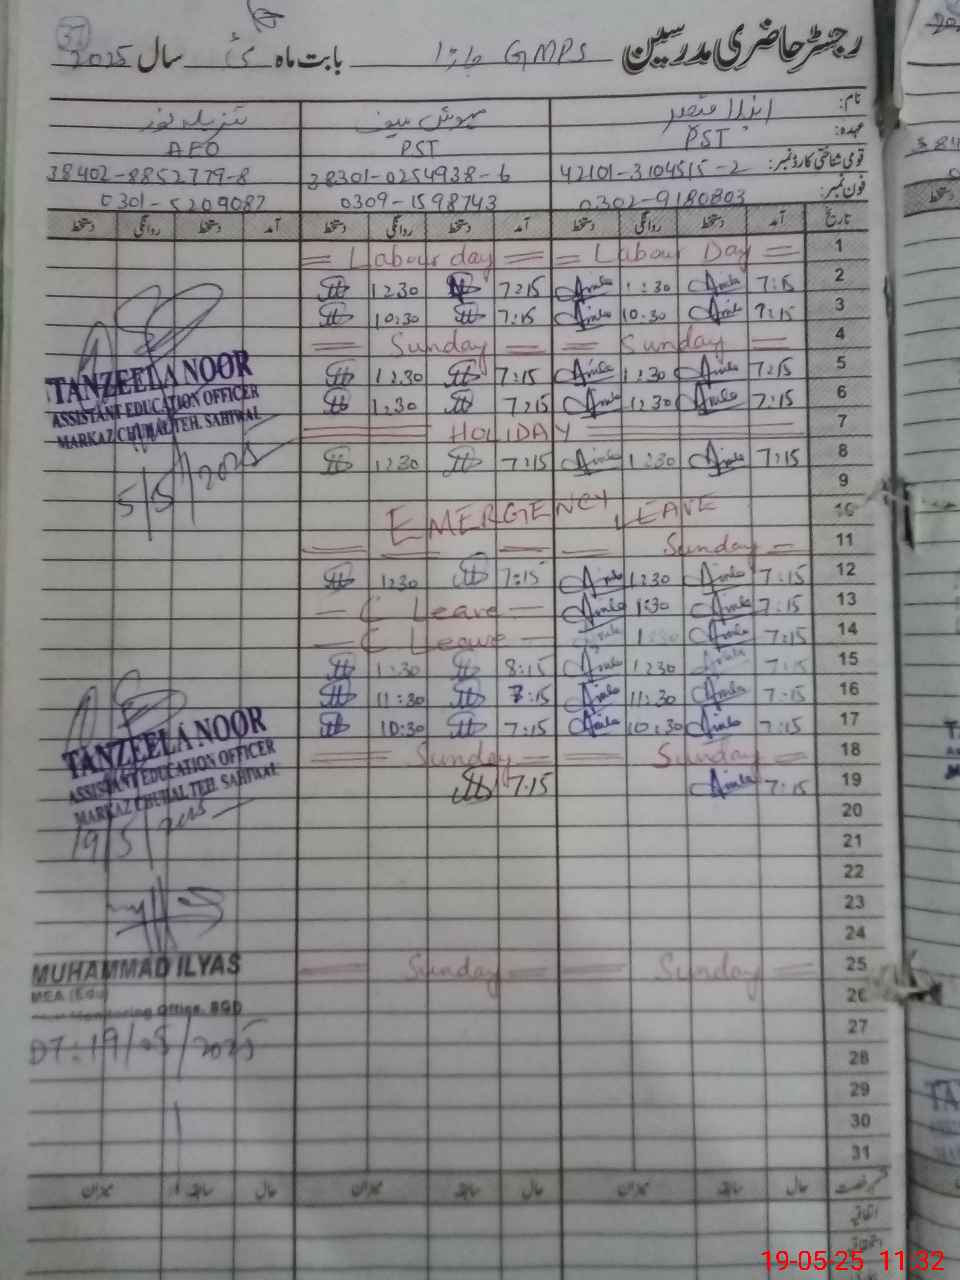 رجسٹر حاضری مدرسین GMPS بابت ماہ مئی سال 2025
37
نام:
عہدہ: PST PST AEO
قومی شناختی کارڈ نمبر: 42101-3104515-2 38301-0254938-6 38402-8852779-8
فون نمبر: 0302-9180803 0309-1598743 0301-5209087
تاریخ آمد دستخط روانگی دستخط آمد دستخط روانگی دستخط آمد دستخط روانگی دستخط
1 Labour Day Labour day
2 7:15 Amla 1:30 Amla 7:15 1230
3 7:15 Amla 10:30 Amla 7:15 10:30
4 Sunday Sunday
5 7:15 Amla 1:30 Amla 7:15 1230
6 7:15 Amla 1230 Amla 7:15 1:30
7 HOLIDAY
8 7:15 Amla 1:30 Amla 7:15 1:30
9
10 EMERGENCY LEAVE
11 Sunday
12 7:15 Amla 1230 Amla 7:15 1230
13 7:15 Amla 1:30 Amla C Leave
14 7:15 Amla Amla C Leave
15 7:15 Amla 1230 Amla 8:15 1:30
16 7:15 Amla 11:30 Amla 7:15 11:30
17 7:15 Amla 10:30 Amla 7:15 10:30
18 Sunday Sunday
19 7:15 Amla 7:15
20
21
22
23
24
25 Sunday Sunday
26
27
28
29
30
31
TANZEELA NOOR
ASSISTANT EDUCATION OFFICER
MARKAZ CHUHAL TEH. SAHIWAL
5/5/2025
TANZEELA NOOR
ASSISTANT EDUCATION OFFICER
MARKAZ CHUHAL TEH. SAHIWAL
19/5/2025
MUHAMMAD ILYAS
MEA (Edu)
Monitoring Office, SGD
DT: 19/05/2025
حال سابقہ میزان حال سابقہ میزان حال سابقہ میزان
اتفاقیہ
19-05-25 11:32